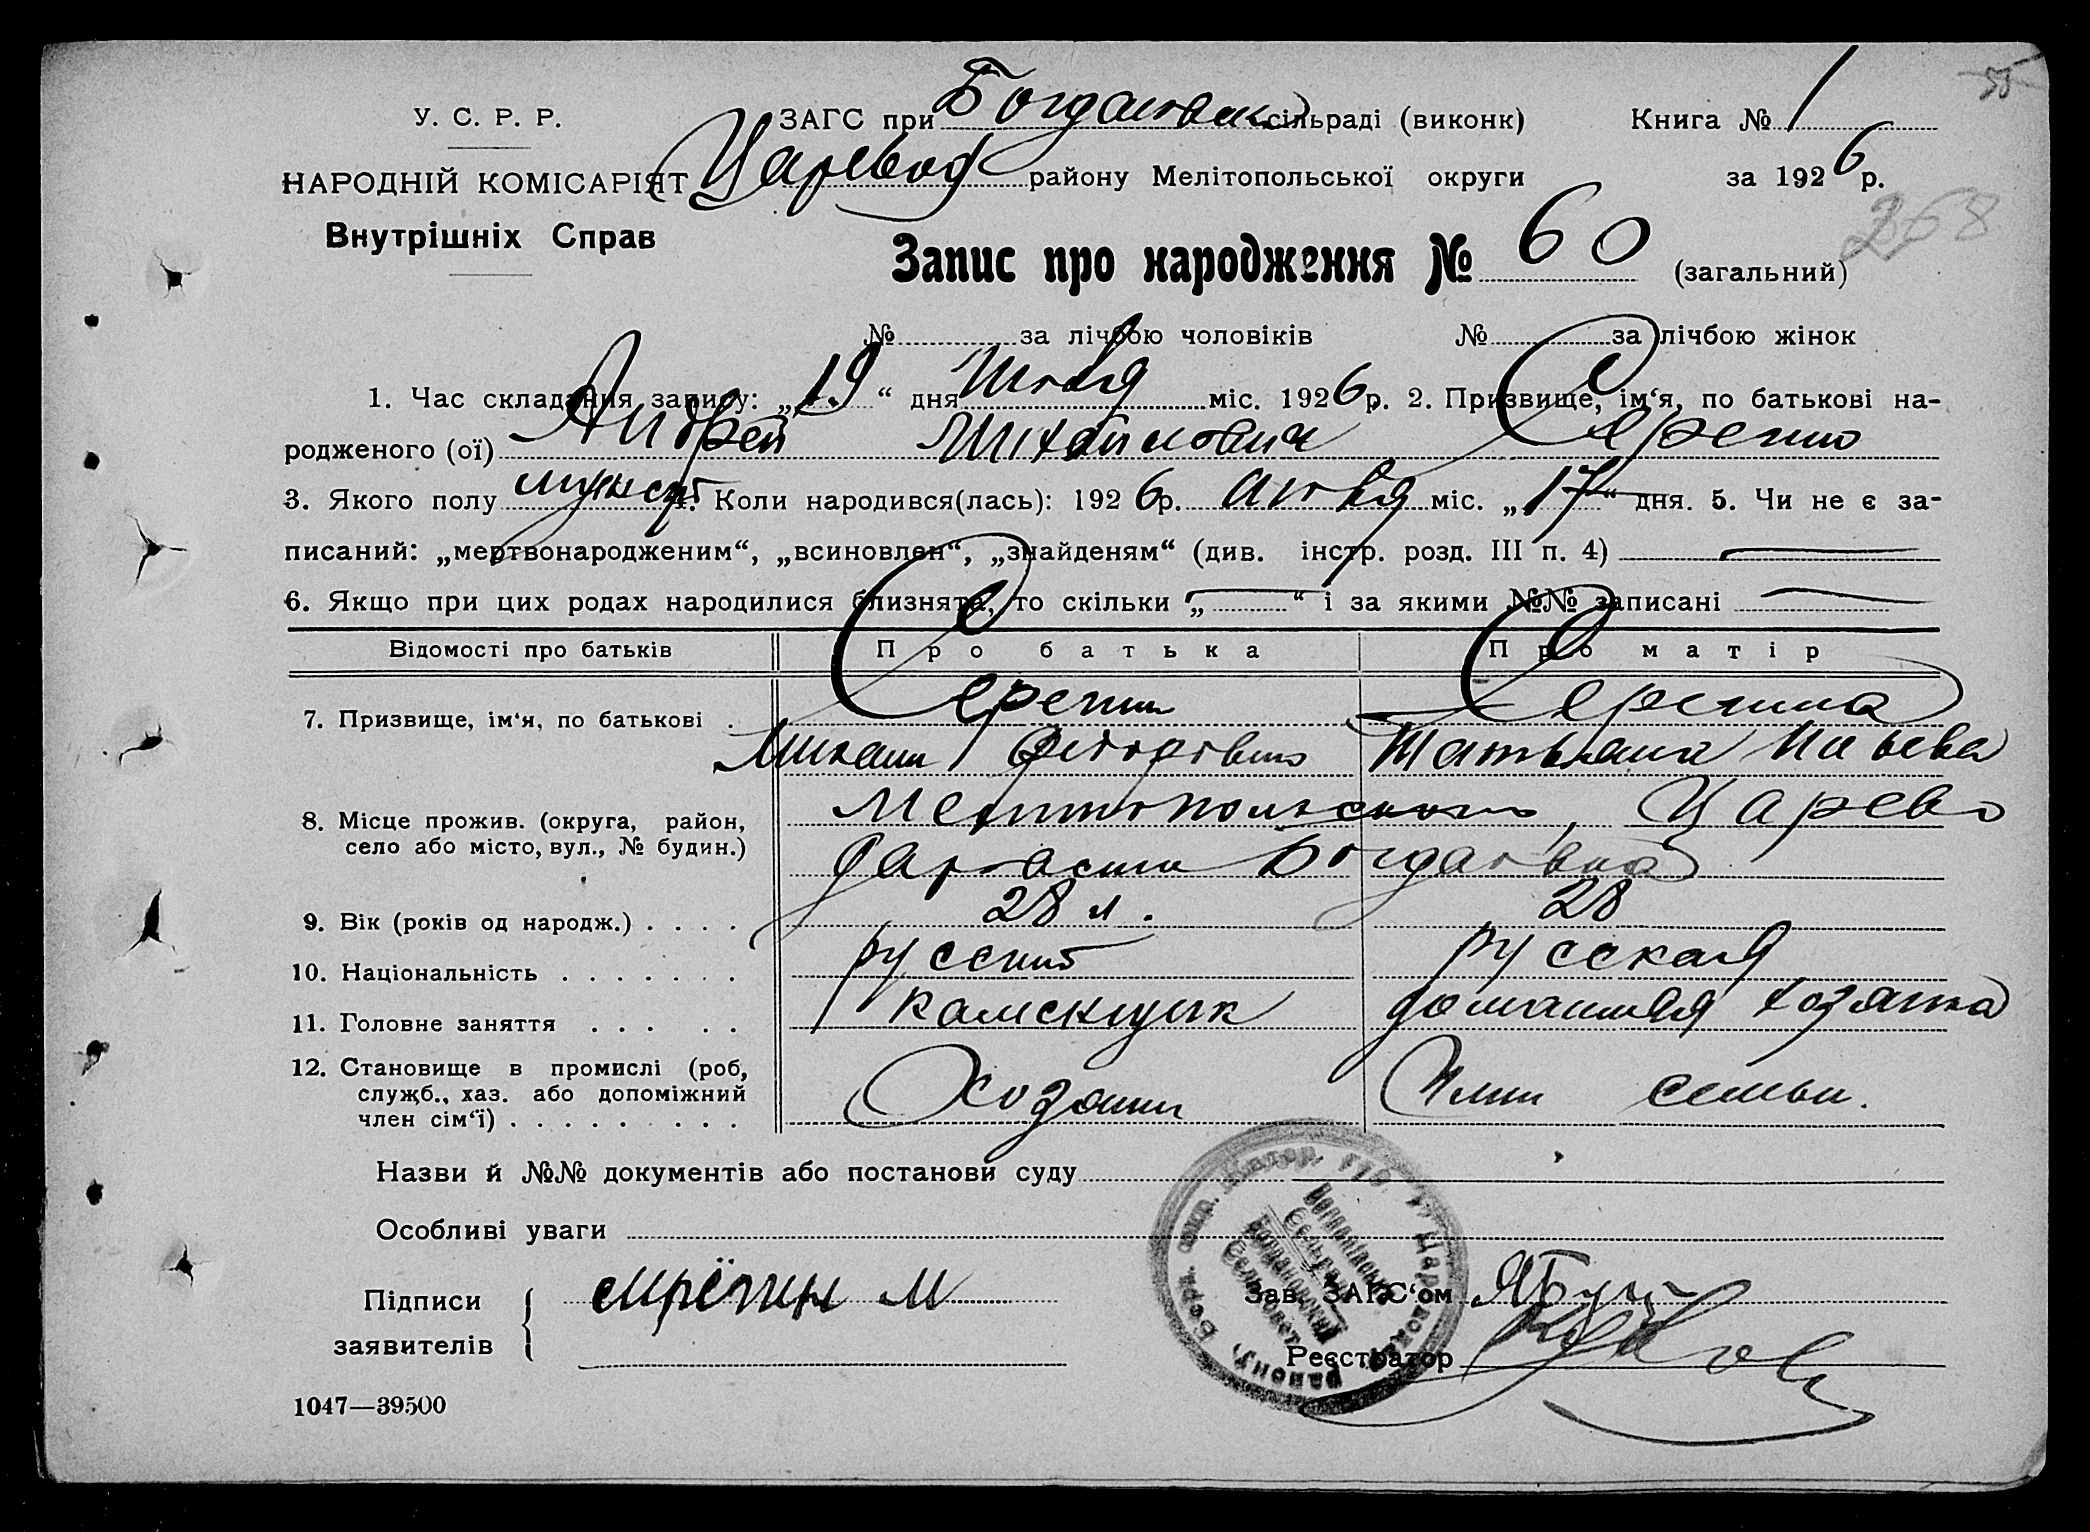 55
У. С. Р. Р.
ЗАГС при Богдановск сільраді (виконк) Книга № 1
НАРОДНІЙ КОМІСАРІЯТ Царевод району Мелітопольської округи за 1926 р.
Внутрішніх Справ
268
Запис про народження № 60 (загальний)
№ за лічбою чоловіків № за лічбою жінок
1. Час складання запису: „19“ дня Янвбря міс. 1926 р. 2. Призвище, ім‘я, по батькові на-
родженого (ої) Андрей Михайлович
3. Якого полу мужск 4. Коли народився(лась): 1926 р. января міс. „17“ дня. 5. Чи не є за-
писаний: „мертвонародженим“, „всиновлен“, „знайденям“ (див. інстр. розд. III п. 4)
6. Якщо при цих родах народилися близнята, то скільки „ “ і за якими №№ записані
Відомості про батьків Про батька Про матір
7. Призвище, ім‘я, по батькові
Михаил Татьяна
8. Місце прожив. (округа, район, Царево
село або місто, вул., № будин.) Богдановка
9. Вік (років од народж.) 28 л. 28
10. Національність русский русская
11. Головне заняття каменщик домашняя хозяйка
12. Становище в промислі (роб,
служб., хаз. або допоміжний Хозяин Член семьи.
член сім‘ї)
Назви й №№ документів або постанови суду
Особливі уваги
Підписи
заявителів
Зав. ЗАГС‘ом
Реєстратор
1047—39500